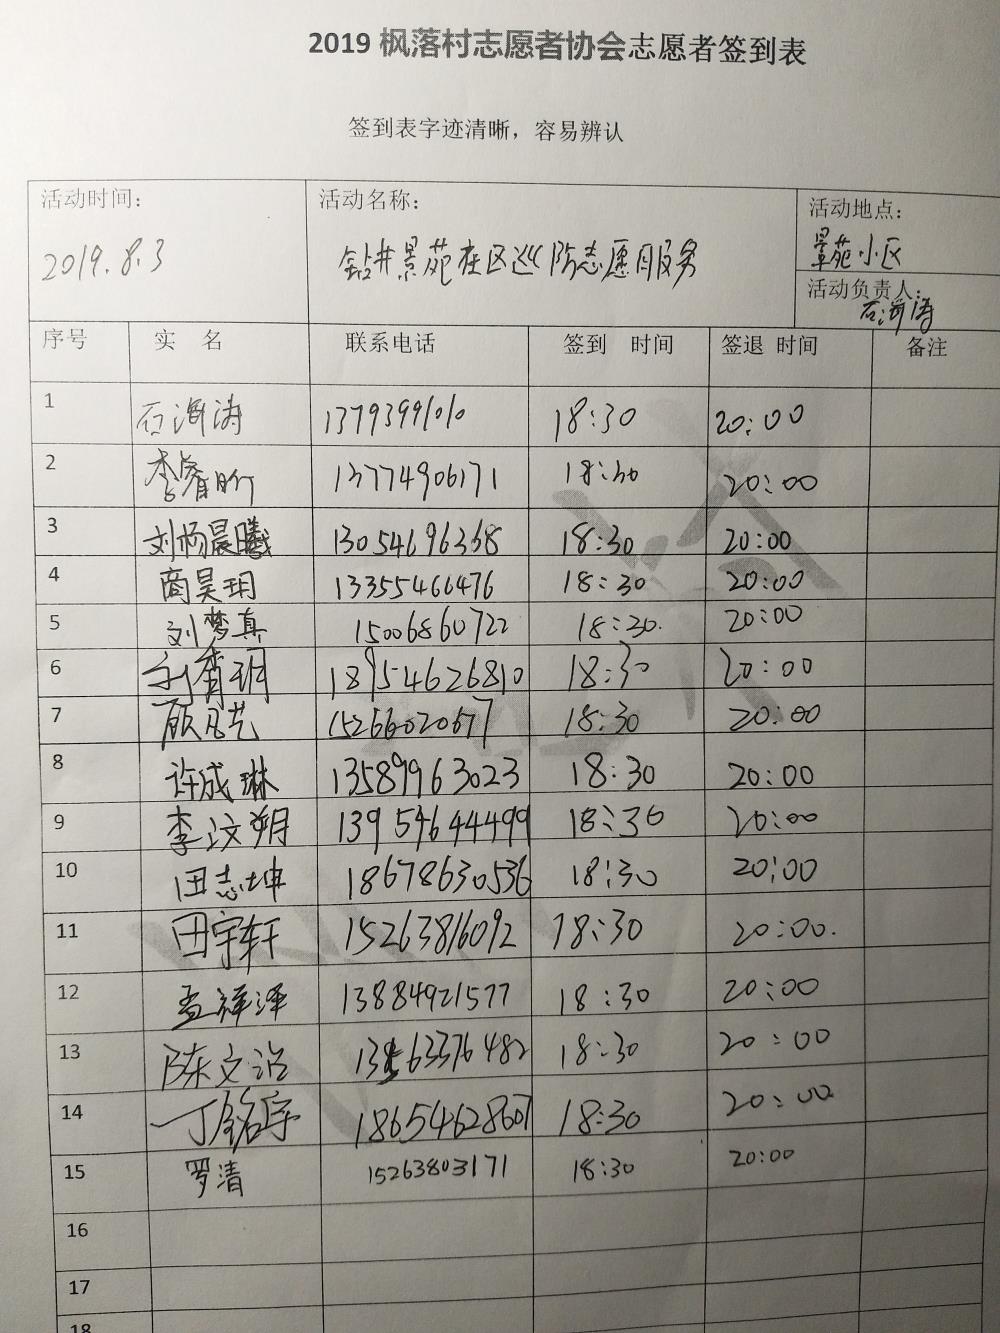 2019 枫落村志愿者协会志愿者签到表
签到表字迹清晰，容易辨认
活动时间： 活动名称： 活动地点：
2019.8.3 钻井景苑社区巡防志愿服务 景苑小区
活动负责人：石海涛
序号 实 名 联系电话 签到 时间 签退 时间 备注
1 石海涛 13793991010 18:30 20:00
2 李睿昕 13774906171 18:30 20:00
3 刘杨晨曦 13054696368 18:30 20:00
4 商昊玥 13355466476 18:30 20:00
5 刘梦真 15006860722 18:30. 20:00
6 18954626810 18:30 20:00
7 顾凡艺 15266020677 18:30 20:00
8 许成琳 13589963023 18:30 20:00
9 李汶朔 13954644499 18:30 20:00
10 田志坤 18678630536 18:30 20:00
11 田宇轩 15263816092 18:30 20:00.
12 孟祥泽 13884921577 18:30 20:00
13 陈文治 18:30 20:00
14 丁铭宇 18654628607 18:30 20:00
15 罗清 15263803171 18:30 20:00
16
17
18